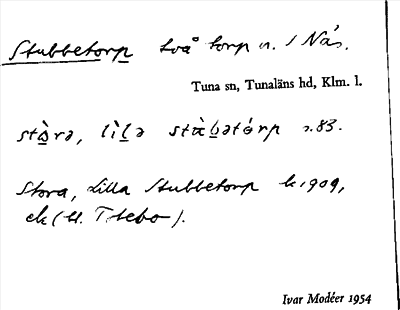 Stubbetorp två torp n. / Nås.
Tuna sn, Tunaläns hd, Klm. l.
stò̱rə, lìḻə stàḇətórp s. 83.
Stora, Lilla Stubbetorp k 1909,
ek (bl. T
Ivar Modéer 1954